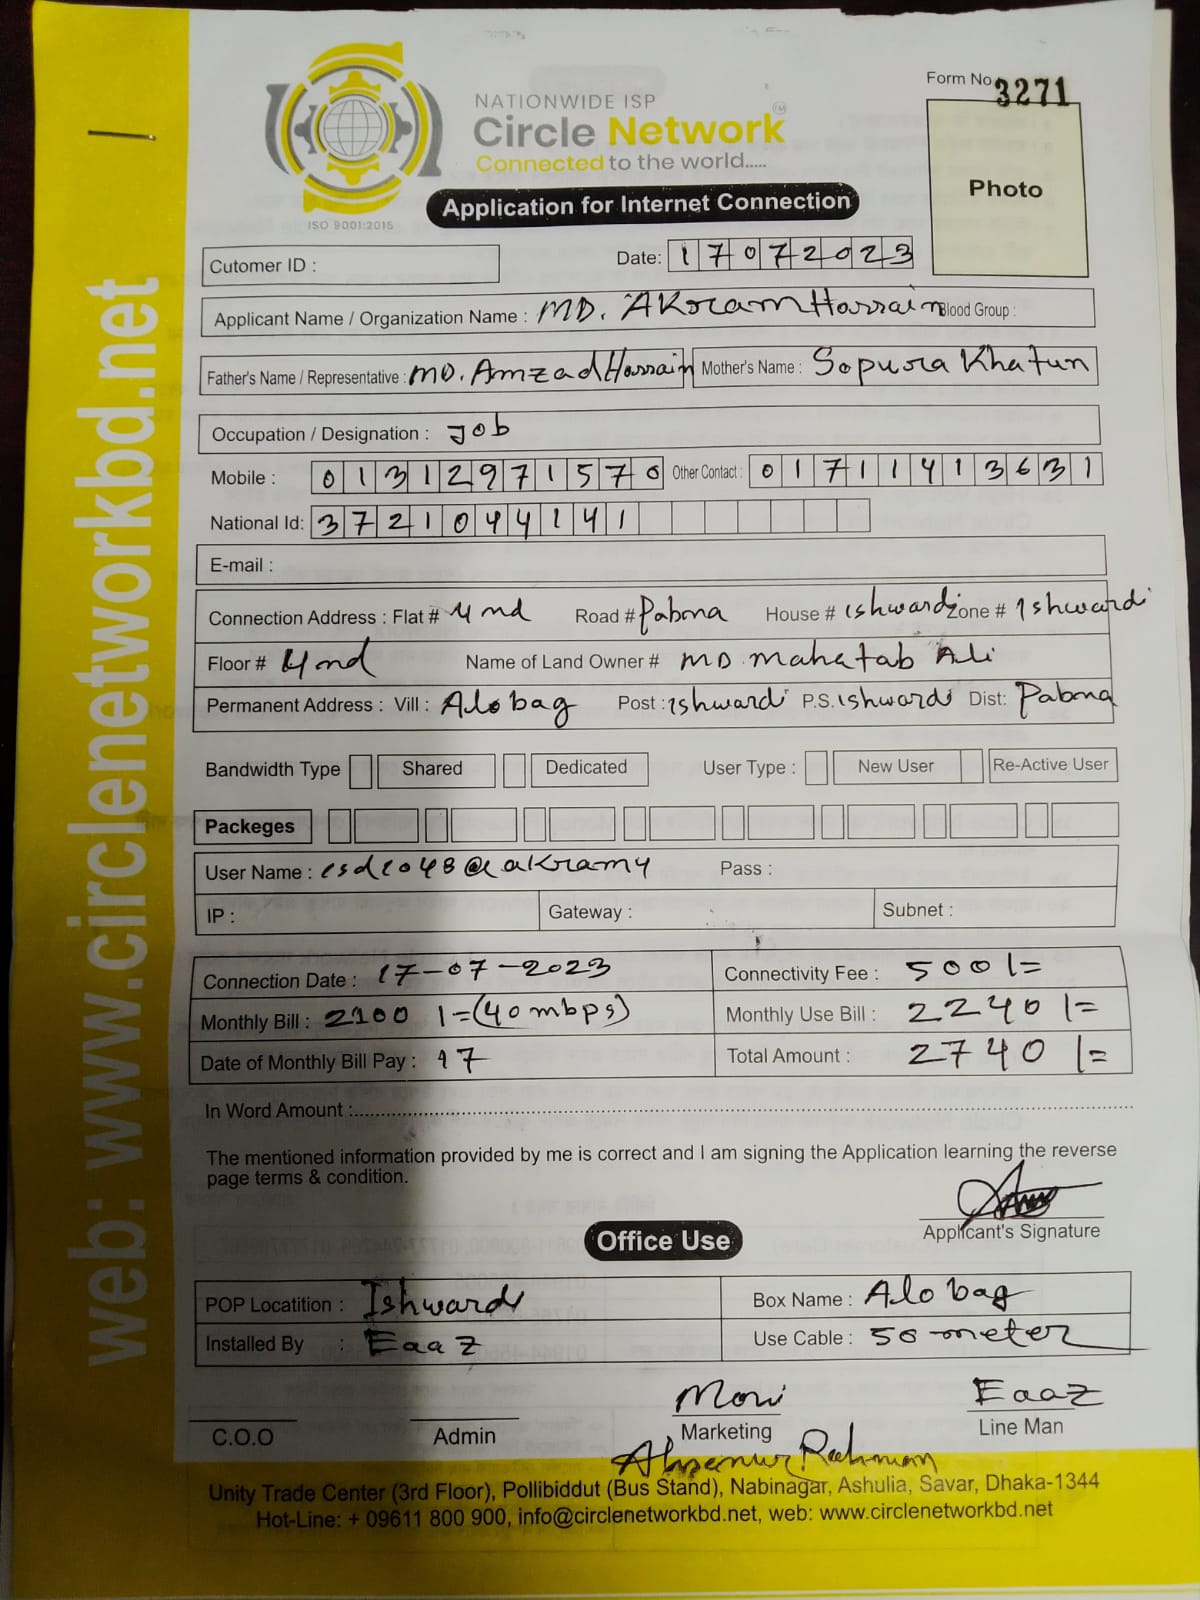 Form No 3271
NATIONWIDE ISP
Circle Network TM
Connected to the world.....
ISO 9001:2015
Application for Internet Connection
Photo
Cutomer ID :
Date: 17072023
Applicant Name / Organization Name : MD. AKram Hossain Blood Group :
Father's Name / Representative : MD. Amzad Hossain Mother's Name : Sopura Khatun
Occupation / Designation : Job
Mobile : 01312971570 Other Contact : 01711413631
National Id: 3721044141
E-mail :
Connection Address : Flat # 4nd Road # Pabna House # ishwardi Zone # Ishwardi
Floor # 4nd Name of Land Owner # MD. mahatab Ali
Permanent Address : Vill : Alobag Post : ishwardi P.S. ishwardi Dist: Pabna
Bandwidth Type Shared Dedicated User Type : New User Re-Active User
Packeges
User Name : Pass :
IP : Gateway : Subnet :
Connection Date : 17-07-2023 Connectivity Fee : 500/=
Monthly Bill : 2100/=(40mbps) Monthly Use Bill : 2240/=
Date of Monthly Bill Pay : 17 Total Amount : 2740/=
In Word Amount :
The mentioned information provided by me is correct and I am signing the Application learning the reverse
page terms & condition.
Applicant's Signature
Office Use
POP Locatition : Ishwardi Box Name : Alobag
Installed By : Eaaz Use Cable : 50 meter
Eaaz
C.O.O Admin Marketing Line Man
Rahman
Unity Trade Center (3rd Floor), Pollibiddut (Bus Stand), Nabinagar, Ashulia, Savar, Dhaka-1344
Hot-Line: + 09611 800 900, info@circlenetworkbd.net, web: www.circlenetworkbd.net
web: www.circlenetworkbd.net